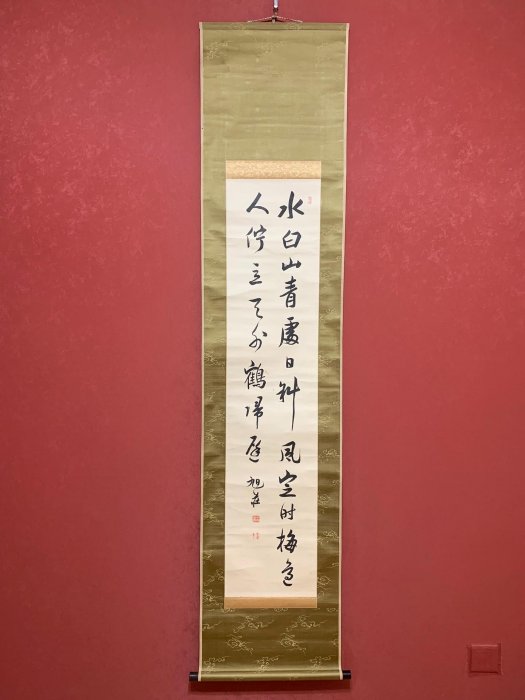 水白山青處日斜風定时梅邊
人佇立天外鶴帰遲
旭荘